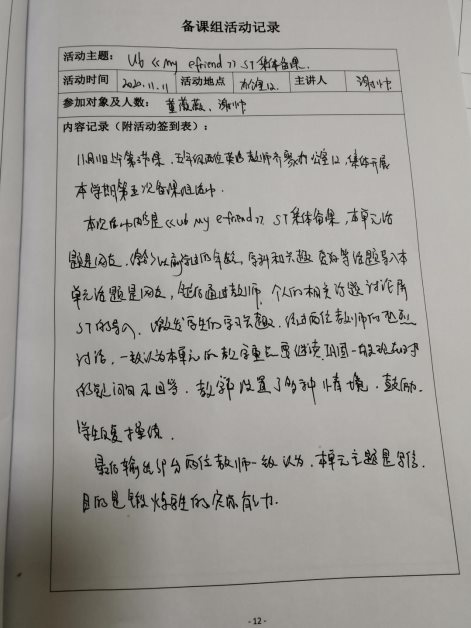 备课组活动记录
活动主题: U6 《My efriend》 ST 集体备课.
活动时间 2020.11.11 活动地点 办公室12. 主讲人 谢帅
参加对象及人数: 董薇薇、谢帅
内容记录(附活动签到表):
11月11日上午第3节课,五年级两位英语教师齐聚办公室12,集体开展
本学期第五次备课组活动.
本次活动内容是《U6 My e-friend》 ST 集体备课,本单元话
题是网友.以前学过的年龄,学科和兴趣爱好等话题导入本
单元话题是网友,然后通过教师个人的相关话题讨论展
ST的导入,激发学生的学习兴趣.经过两位教师的热烈
讨论,一致认为本单元的教学重点要继续巩固一般现在时
的疑问句和回答.教师设置了多种情境,鼓励
学生反复操练.
最后输出部分两位教师一致认为,本单元主题是写信,
目的是锻炼学生的实际能力.
- 12 -